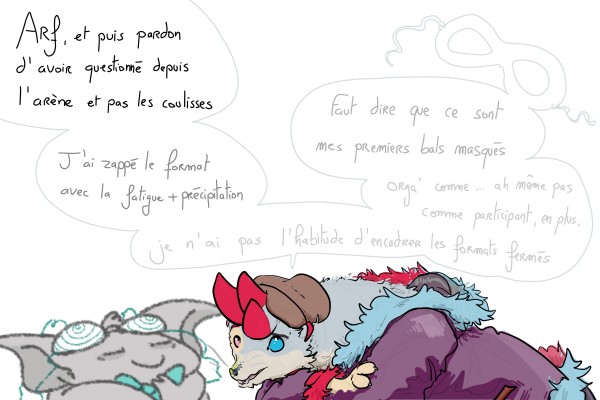 Arf, et puis pardon
d'avoir questionné depuis
l'arène et pas les coulisses
J'ai zappé le format
avec la fatigue + précipitation
Faut dire que ce sont
mes premiers bals masqués
orga' comme... ah même pas
comme participant, en plus.
je n'ai pas l'habitude d'encadrer les formats fermés